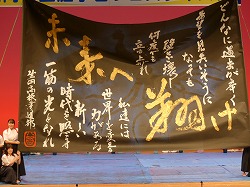 どんなに過去が辛く
夢を見失いそうに
なっても
壁を壊し
何度でも
立ち上がれ
翔け
未来へ
私達には
世界を変える
力がある
新しい
時代を照らす
一筋の光となれ
高校書道部